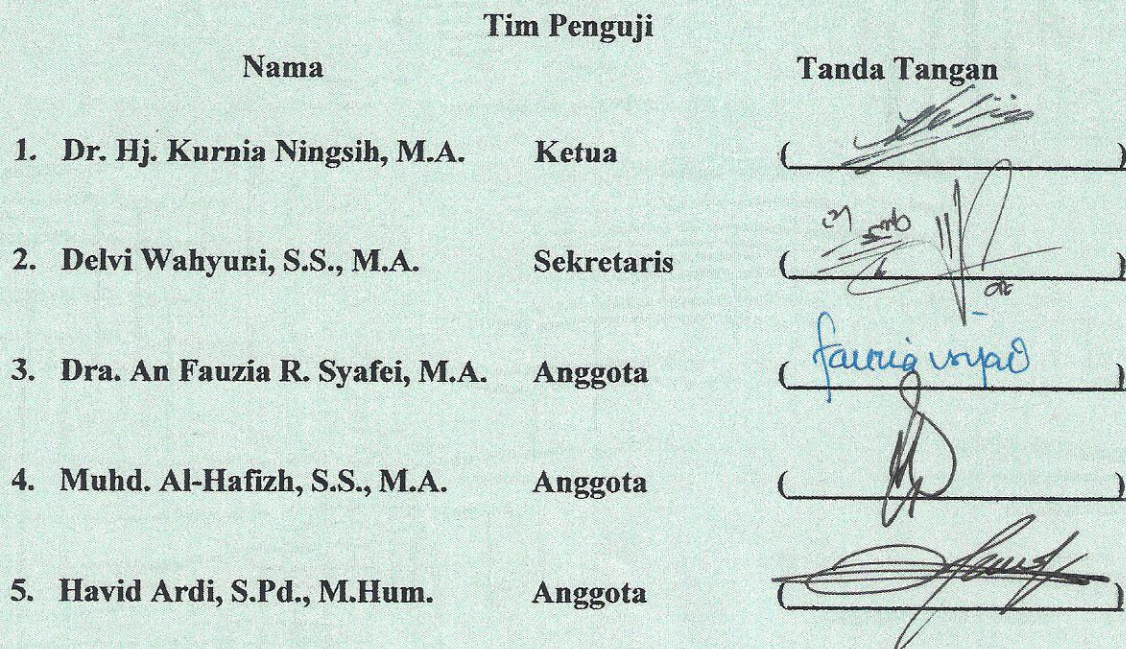 Tim Penguji
Nama Tanda Tangan
1. Dr. Hj. Kurnia Ningsih, M.A. Ketua ( )
2. Delvi Wahyuni, S.S., M.A. Sekretaris ( )
3. Dra. An Fauzia R. Syafei, M.A. Anggota ( )
4. Muhd. Al-Hafizh, S.S., M.A. Anggota ( )
5. Havid Ardi, S.Pd., M.Hum. Anggota ( )